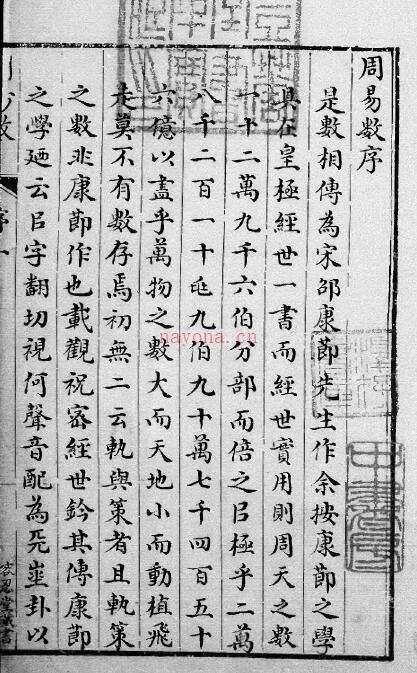 周易數序
是數相傳為宋邵康節先生作余按康節之學
具在皇極經世一書而經世實用則周天之數
十二萬九千六伯分部而倍之㠯極乎二萬
八千二百一十屯九伯九十萬七千四百五十
六億以盡乎萬物之數大而天地小而動植飛
走莫不有數存焉初無二云軌與策者且軌策
之數非康節作也載觀祝宻經世鈐其傳康節
之學廼云㠯字翻切視何聲音配為旡𡴞卦以
nayona.cn